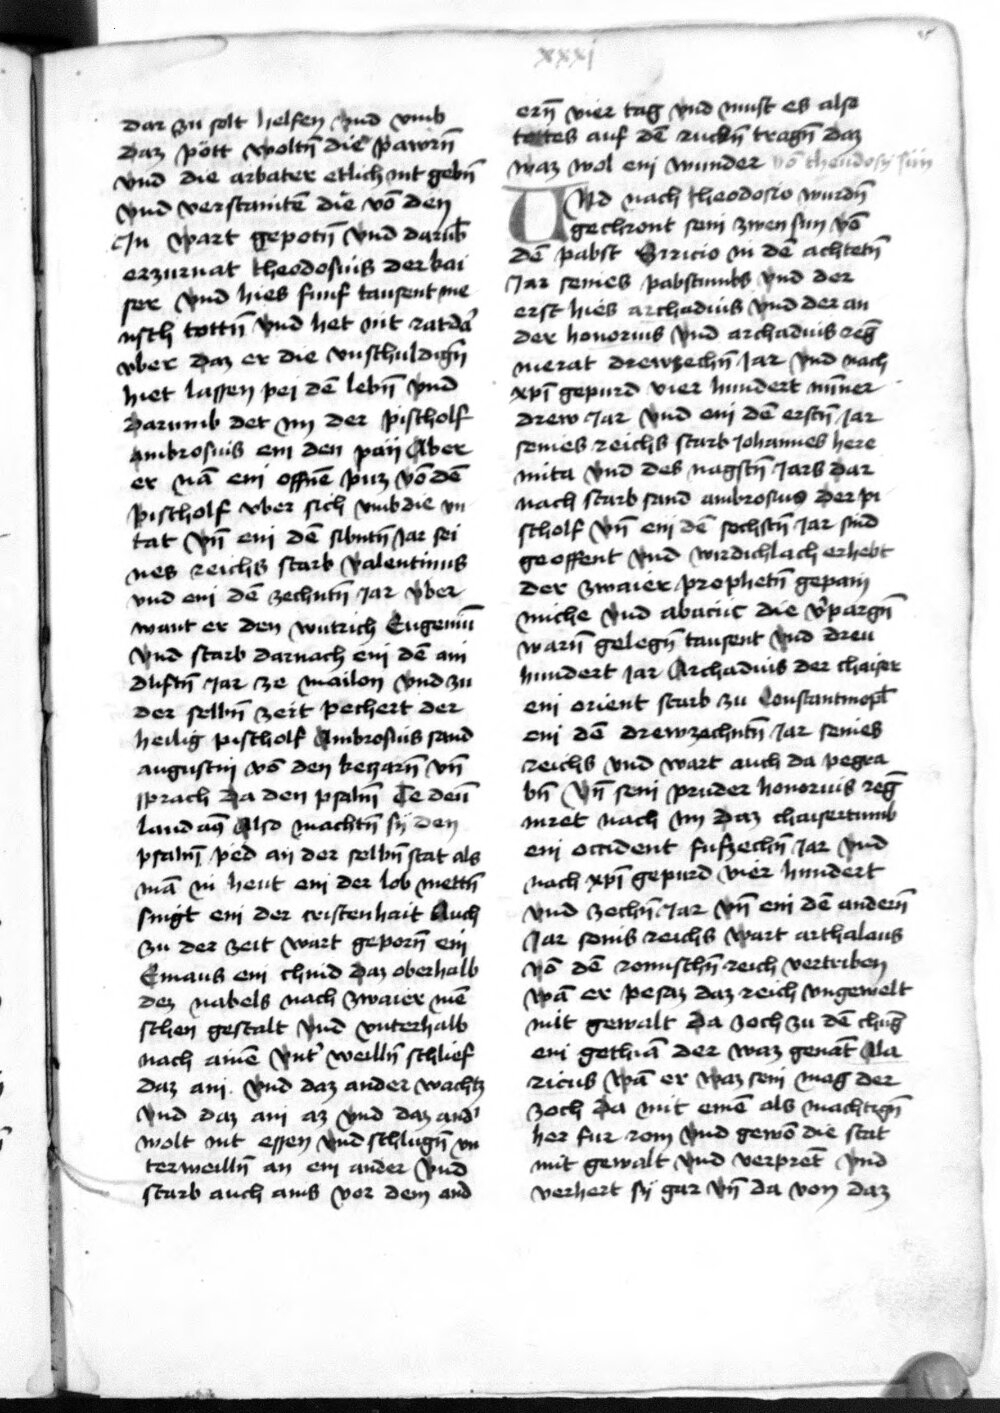 xxxj
dar zu solt helfen vnd vmb
daz pött woltn̄ die pawrn̄
vnd die arbater etlich nit gebn̄
vnd verstaintē die vō den
In wart gepotn̄ vnd darūb
erzurnat theodosius der kai
ser vnd hies funf tausent me
nsch tottn̄ vnd het nit rat dar
vber daz er die vnschuldign̄
hiet lassen pei dē lebn̄ vnd
darumb det im der pischolf
ambrosius ein den pan Aber
er nā ein offnē puz vō dē
pischolf vber sich vmb die vn
tat vn̄ ein dē sibntn̄ Jar sei
nes reichs starb valentinus
vnd ein dē zechntn̄ Jar vber
want er den wutrich Eugeniū
vnd starb darnach ein dē ain
dliftn̄ Jar ze mailon vnd zu
der selbn̄ zeit pechert der
heilig pischolf Ambrosius sand
augustin vō den kezarn̄ vn̄
sprach da den psalm̄ Te deū
laudam9 Also machtn̄ sy den
psalm̄ ped an der selbn̄ stat als
mā in heut ein der lob mettn̄
singt ein der cristenhait Auch
zu der zeit wart geporn̄ ein
Emaus ein chind daz oberhalb
dez nabels nach zwaier mē
schen gestalt vnd vnterhalb
nach ainē vnt' weilln̄ schlief
daz ain vnd daz ander wachtz
vnd daz ain az vnd daz and'
wolt nit essen vnd schlugn̄ vn
terweilln̄ an ein ander vnd
starb auch ains vor dem and
ern̄ vier tag vnd must es also
tottes auf dē ruckn̄ tragn̄ daz
waz wol ein wunder vō theudosy sün
VNd nach theodosio wurdn̄
gechront sein zwen sun vō
dē pabst Siricio in dē achtetn̄
Jar seines pabstumbs vnd der
erst hies archadius vnd der an
der honorius vnd archadius reḡ
nierat drewzechn̄ Jar vnd nach
xp̄i gepurd vier hundert minner
drew Jar vnd ein dē erstn̄ Jar
seines reichs starb Johannes here
mita vnd des nagstn̄ Jars dar
nach starb sand ambrosius der pi
scholf vn̄ ein dē sechstn̄ Jar sind
geoffent vnd wirdichlach erhebt
der zwaier prophetn̄ gepain
miche vnd abacuc die v'pargn̄
warn̄ gelegn̄ tausent vnd dreu
hundert Jar Archadius der chaiser
ein orient starb zu Constantinopl̄
ein dē drewzechntn̄ Jar seines
reichs vnd wart auch da pegra
bn̄ vn̄ sein pruder honorius reḡ
niret nach im daz chaisertumb
ein occident fufzechn̄ Jar vnd
nach xp̄i gepurd vier hundert
vnd zechn̄ Jar vn̄ ein dē andern̄
Jar seinis reichs wart arthalaus
vō dē romischn̄ reich vertriben
wā er pesaz daz reich vngewelt
mit gewalt da zoch zu dē chu̅g
ein gethiā der waz genāt Ala
ricus wā er waz sein mog der
zoch da mit einē als machtign̄
her fur rom vnd gewō die stat
mit gewalt vnd verpret̄ vnd
verhert sy gar vn̄ da von daz